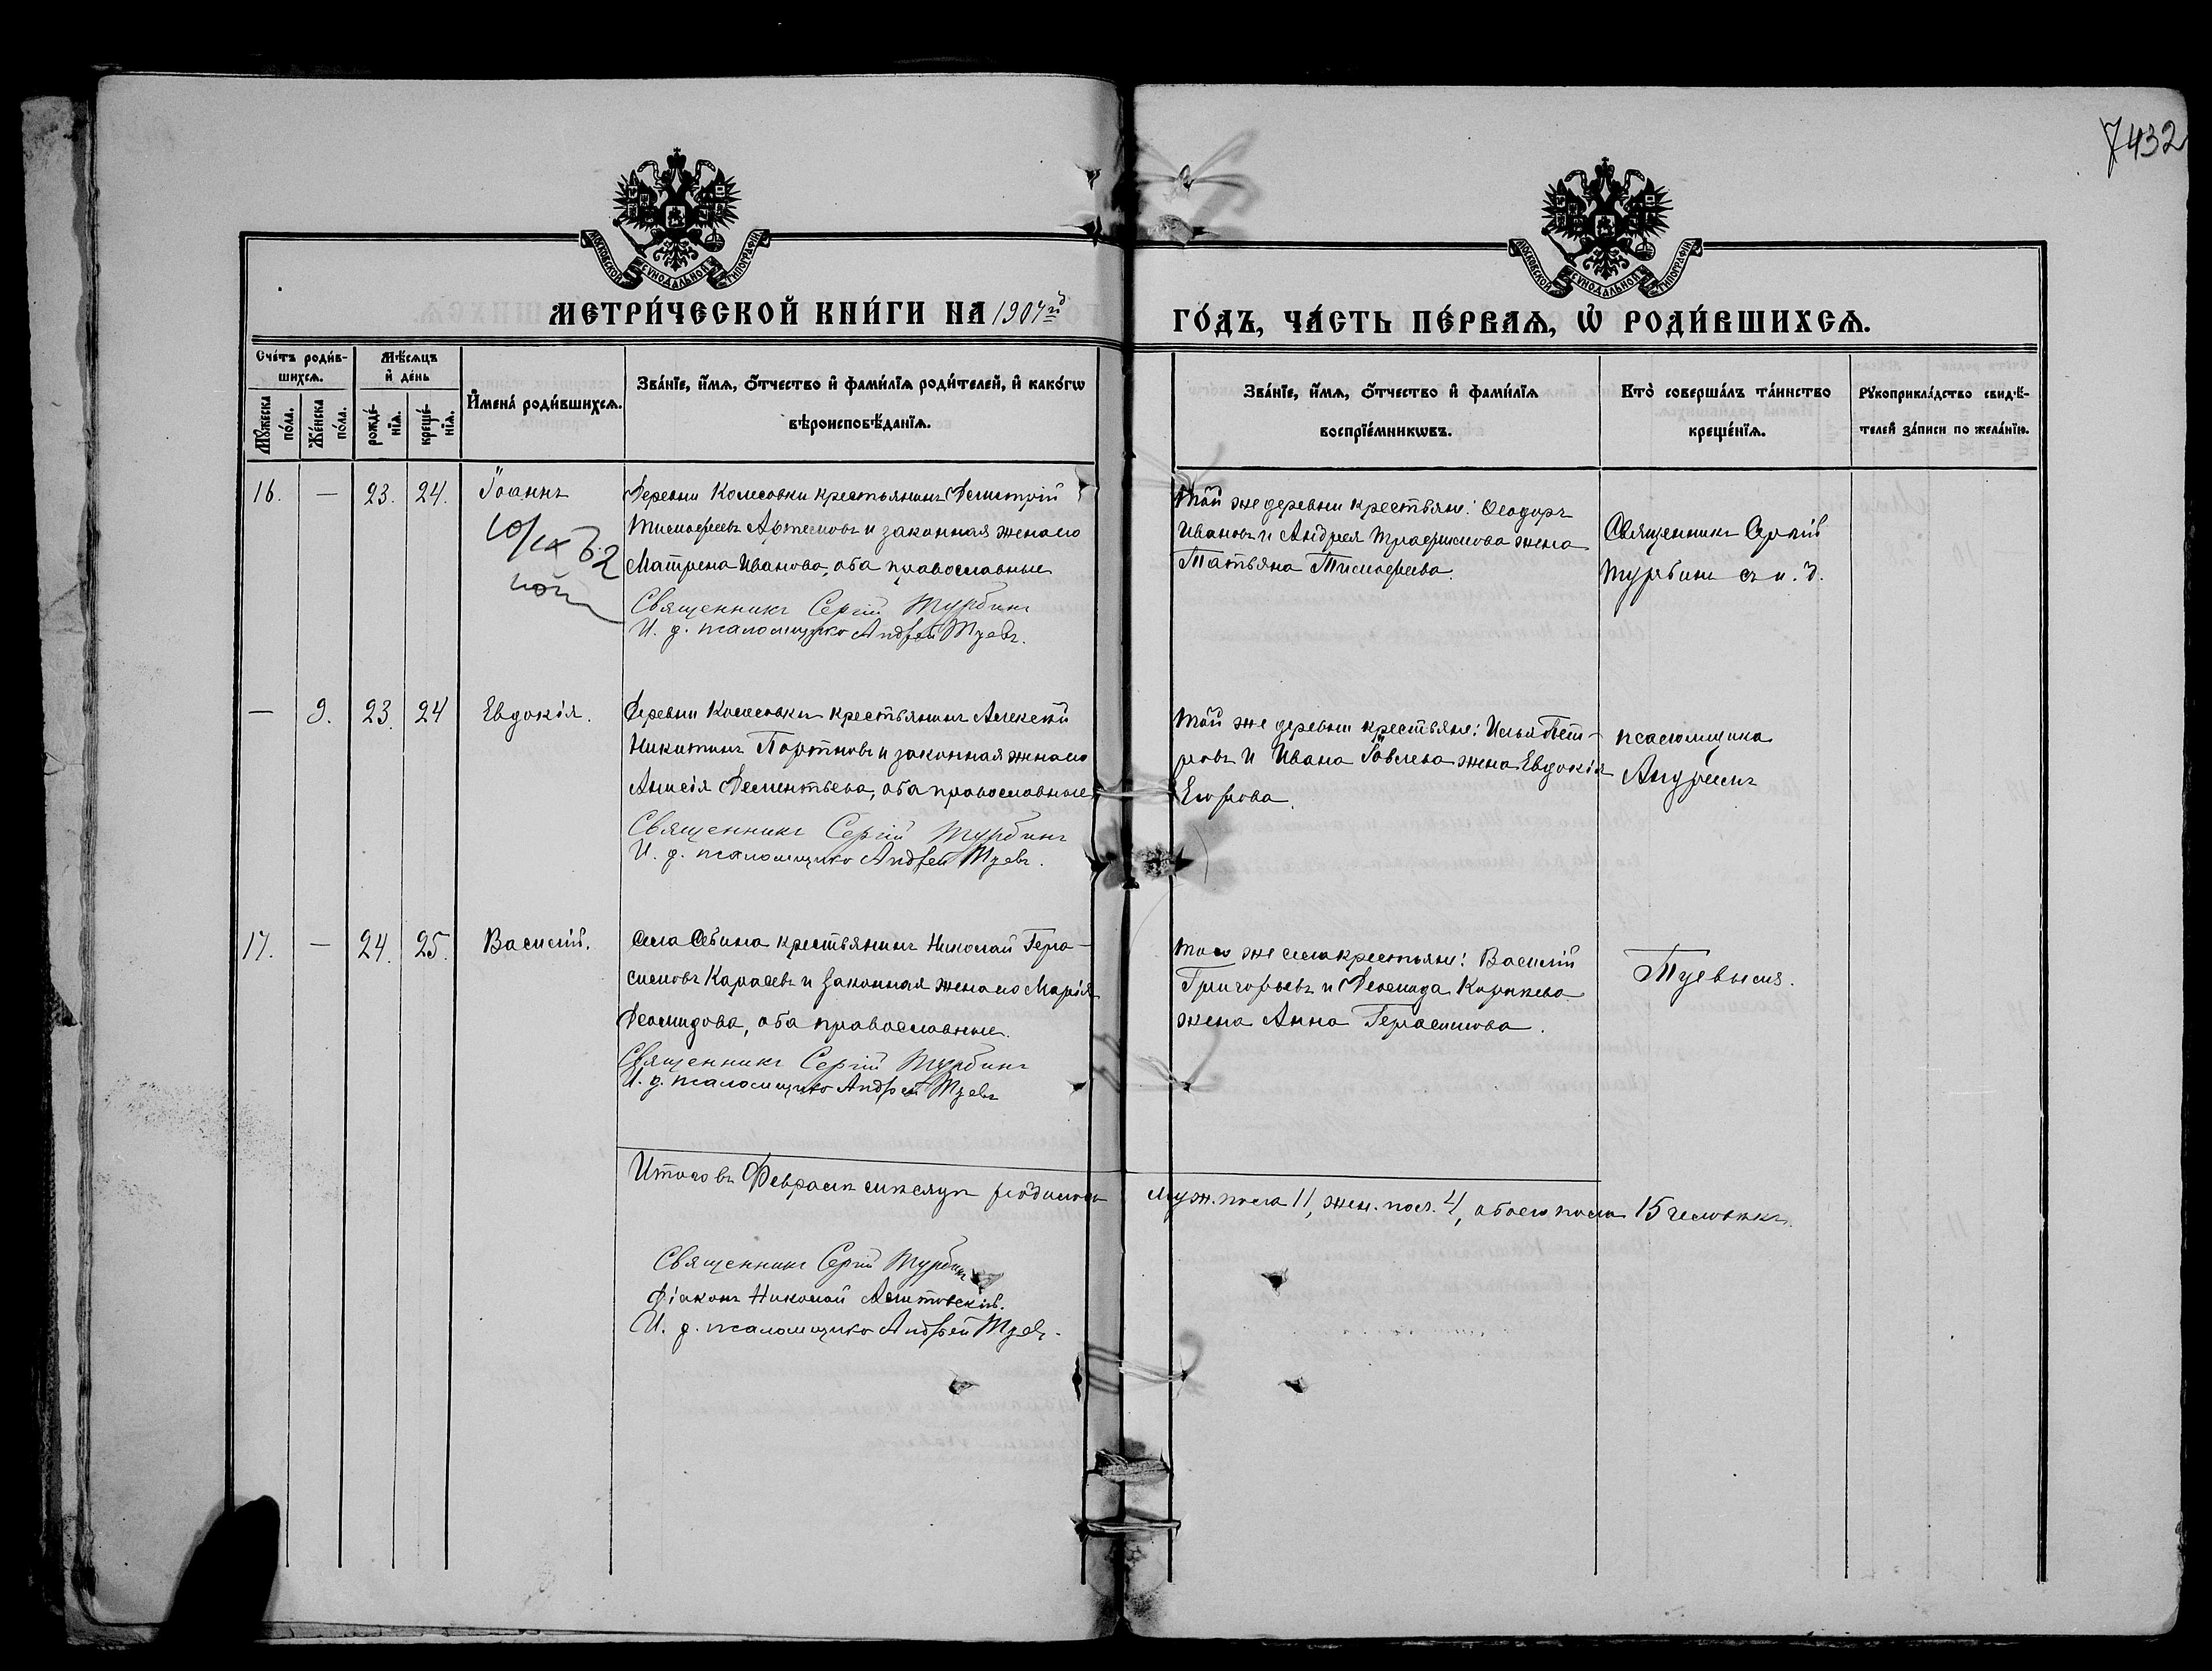 7432
МОСКОВСКОЙ СѴНОДАЛЬНОЙ ТИПОГРАФІИ
МОСКОВСКОЙ СѴНОДАЛЬНОЙ ТИПОГРАФІИ
МЕТРИ́ЧЕСКОЙ КНИ́ГИ НА 1904й
ГО́ДЪ, ЧА́СТЬ ПЕ́РВАѦ, Ѡ҆ РОДИ́ВШИХСѦ.
Сче́тъ роди́в-
шихсѧ.
Мѣ́сѧцъ
и҆ де́нь
Мꙋ́жеска по́ла.
Же́нска по́ла.
рожде́-
нїѧ.
креще́-
нїѧ.
И҆мена̀ роди́вшихсѧ.
Зва́нїе, и҆́мѧ, ѻ҆́тчество и҆ фами́лїѧ роди́телей, и҆ како́гѡ
вѣроисповѣ́данїѧ.
Зва́нїе, и҆́мѧ, ѻ҆́тчество и҆ фами́лїѧ
воспрїе́мникѡвъ.
Кто̀ соверша́лъ та́инство
креще́нїѧ.
Рꙋкоприкла́дство свидѣ́-
телей за́писи по жела́нїю.
16. — 23. 24. Іоаннъ
Деревни Колесовки крестьянинъ Димитрій
Тимофеевъ Артемовъ и законная жена его
Матрена Иванова, оба православные
Священникъ Сергій Турбинъ
И. д. псаломщика Андрей Туевъ.
Той же деревни крестьяне: Ѳеодоръ
Ивановъ и Андрея Трафимова жена
Татьяна Тимофеева.
Священникъ Сергій
Турбинъ съ и. д.
— 9. 23. 24 Евдокія.
Деревни Колесовки крестьянинъ Алексѣй
Никитинъ Портновъ и законная жена его
Анисія Дементьева, оба православные
Священникъ Сергій Турбинъ
И. д. псаломщика Андрей Туевъ.
Той же деревни крестьяне: Илья Пет-
ровъ и Ивана жена Евдокія
Егорова.
псаломщика
Андреемъ
17. — 24. 25. Василій.
Села Севина крестьянинъ Николай Гера-
симовъ Карасевъ и законная жена его Марія
Деомидова, оба православные.
Священникъ Сергій Турбинъ
И. д. псаломщика Андрей Туевъ
Того же села крестьяне: Василій
Григорьевъ и Деомида
жена Анна Герасимова.
Туевымъ.
Итого въ Февралѣ мѣсяцѣ родилось муж. пола 11, жен. пол. 4, обоего пола 15 человѣкъ.
Священникъ Сергій Турбинъ
Діаконъ Николай
И. д. псаломщика Андрей Туевъ.